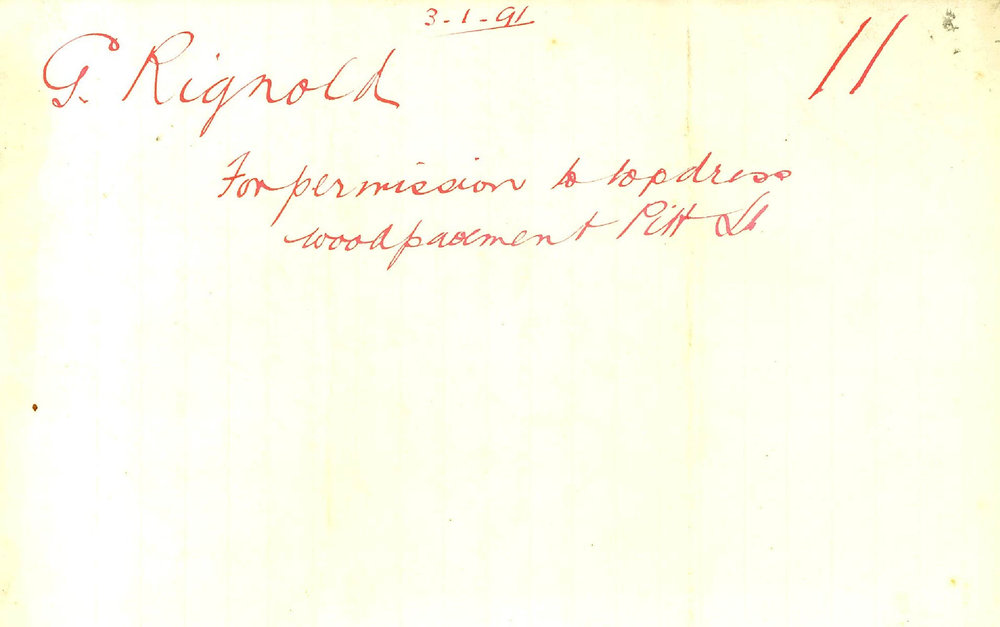 3-1-91
G. Rignold 11
For permission to topdress
woodpavement Pitt St